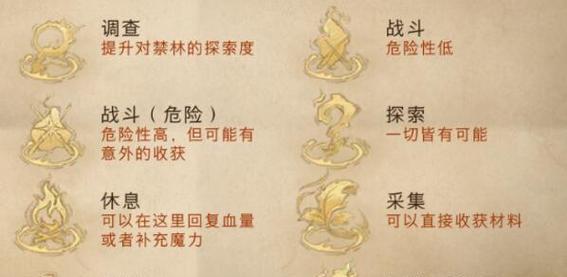 调查
提升对禁林的探索度
战斗
危险性低
战斗（危险）
危险性高，但可能有
意外的收获
探索
一切皆有可能
休息
可以在这里回复血量
或者补充魔力
采集
可以直接收获材料